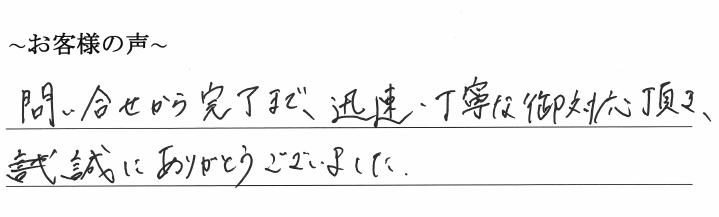 ~お客様の声~
問い合せから完了まで、迅速・丁寧な御対応頂き、
誠にありがとうございました.